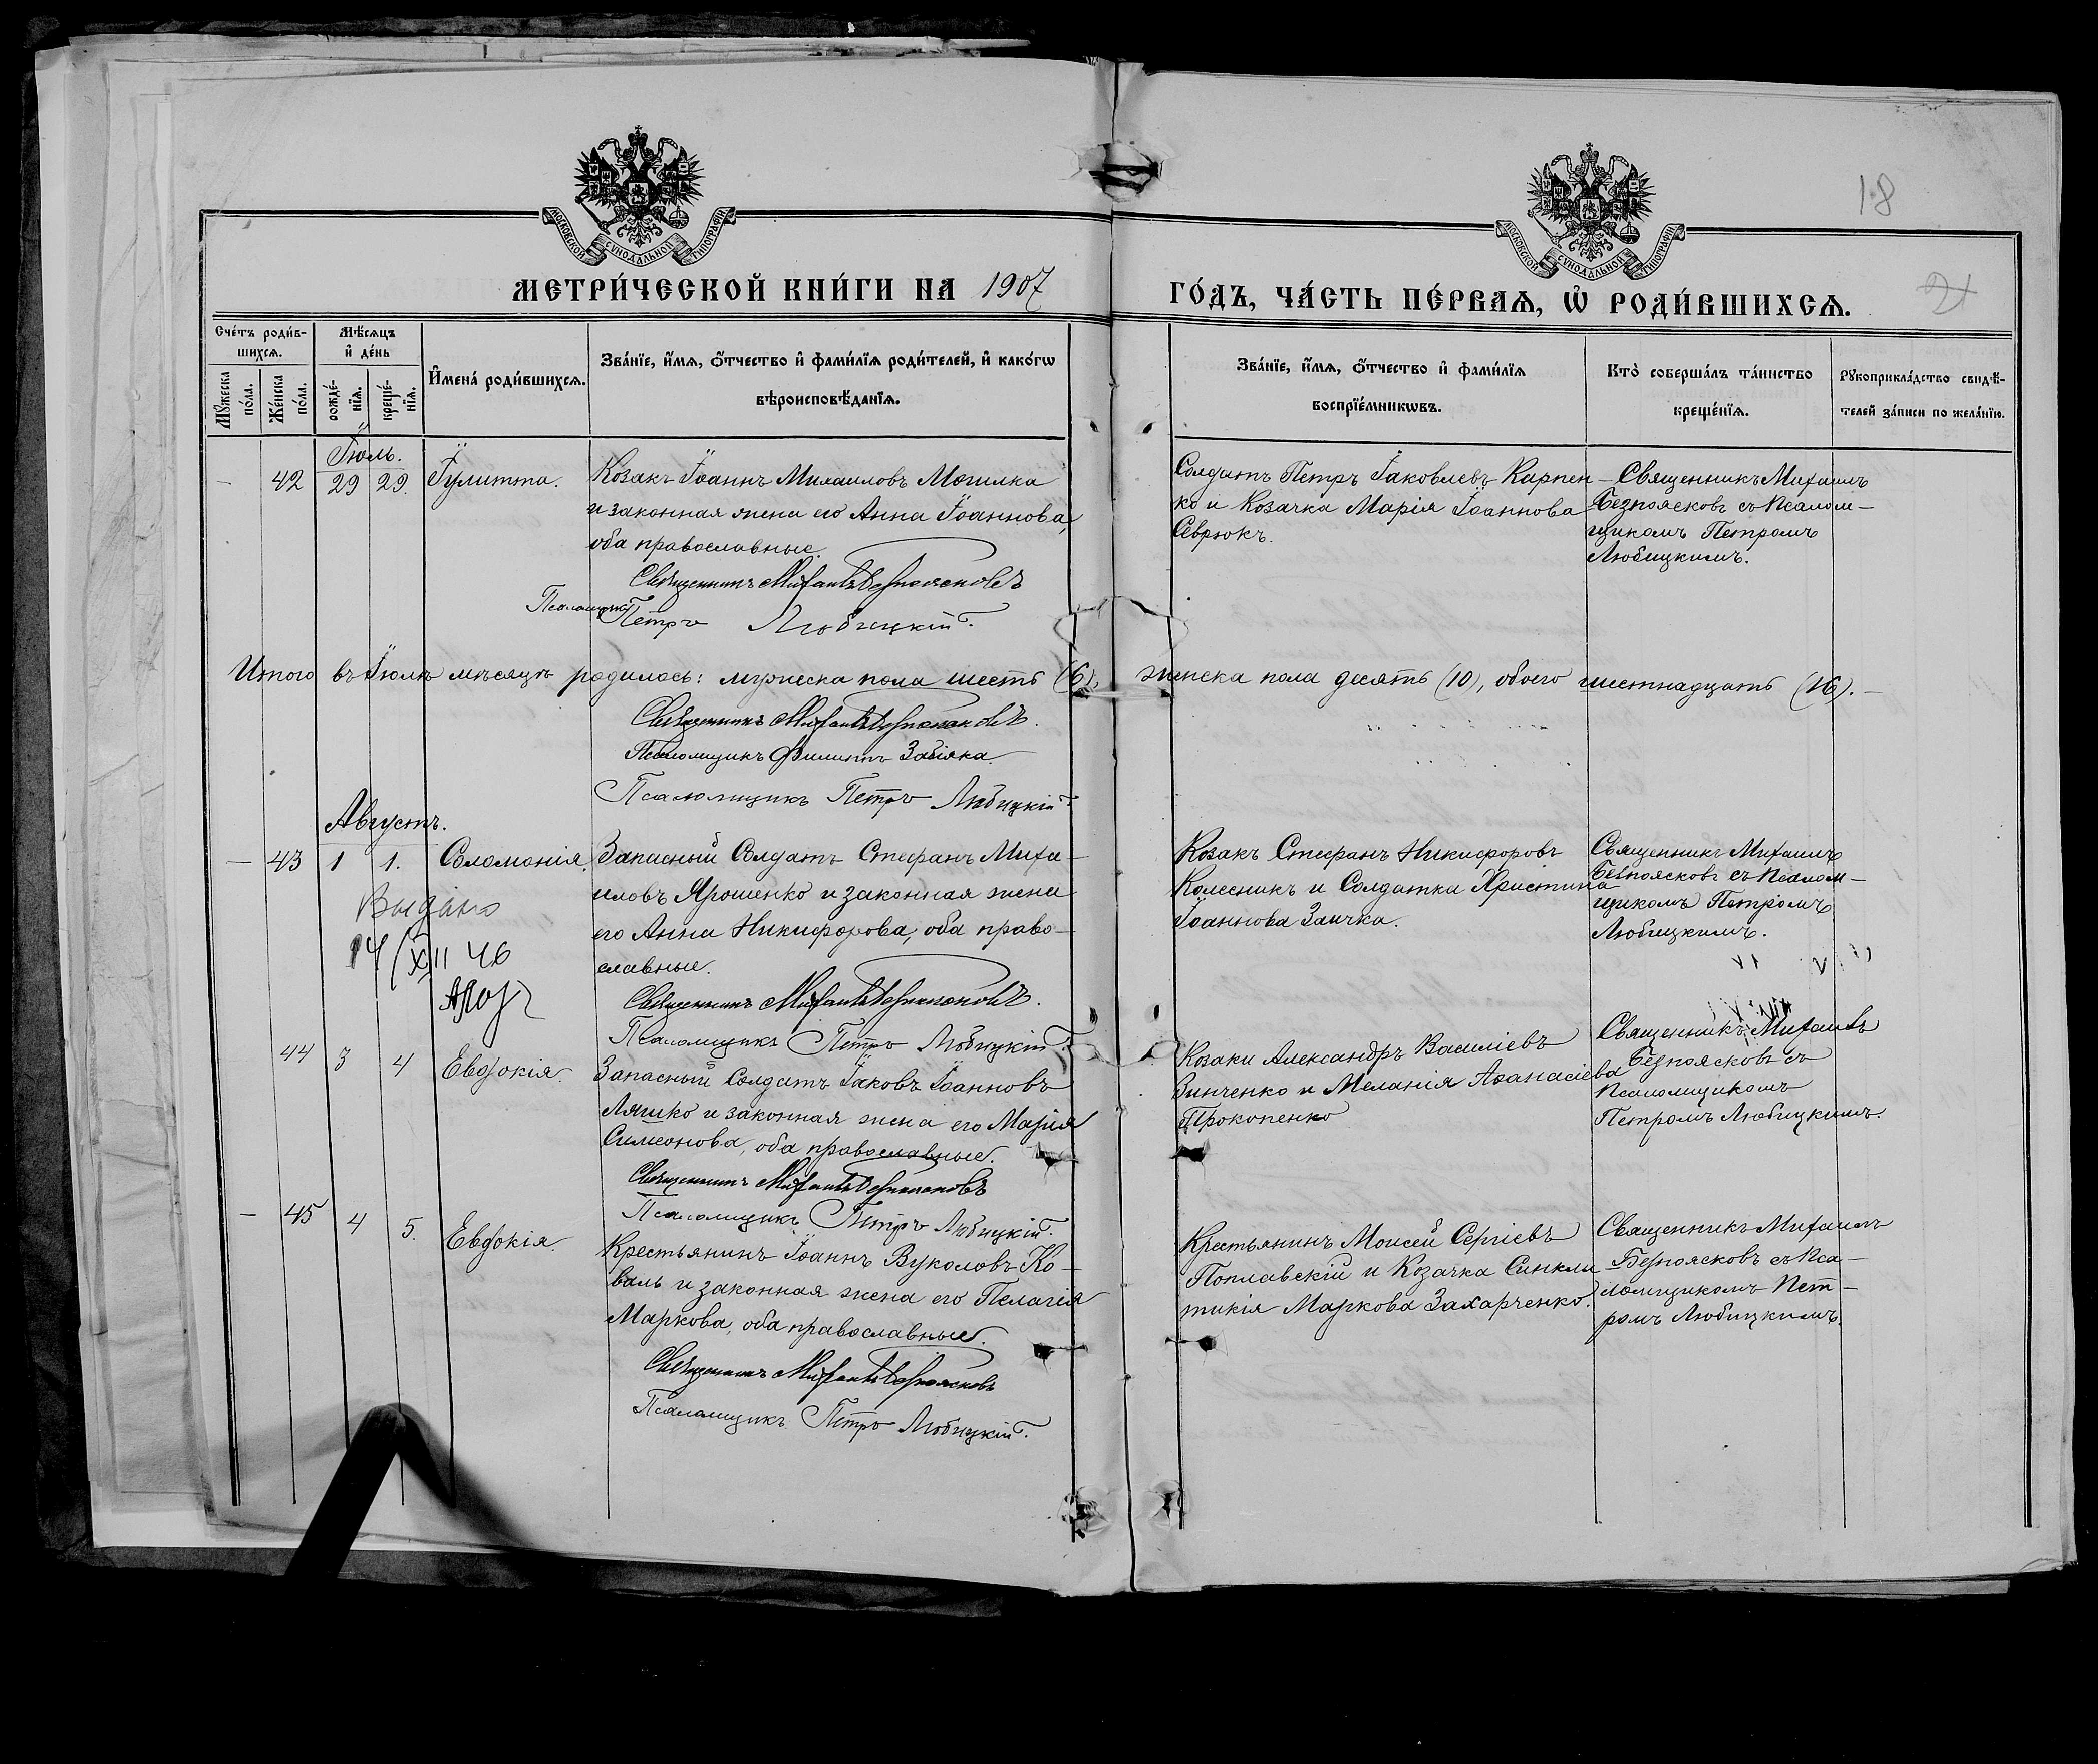 18
21
МОСКОВСКОЙ СѴНОДАЛЬНОЙ ТИПОГРАФІИ
МОСКОВСКОЙ СѴНОДАЛЬНОЙ ТИПОГРАФІИ
МЕТРИ́ЧЕСКОЙ КНИ́ГИ НА 1907
ГО́ДЪ, ЧА́СТЬ ПЕ́РВАѦ, Ѡ҆ РОДИ́ВШИХСѦ.
Сче́тъ роди́в-
шихсѧ.
Мꙋ́жеска по́ла.
Же́нска по́ла.
Мѣ́сѧцъ
и҆ де́нь
рожде́-
нїѧ.
креще́-
нїѧ.
И҆мена́ роди́вшихсѧ.
Зва́нїе, и҆́мѧ, ѻ҆́тчество и҆ фами́лїѧ роди́телей, и҆ како́гѡ
вѣроисповѣ́данїѧ.
Зва́нїе, и҆́мѧ, ѻ҆́тчество и҆ фами́лїѧ
воспрїе́мникѡвъ.
Кто̀ соверша́лъ та́инство
креще́нїѧ.
Рꙋкоприкла́дство свидѣ́-
телей за́писи по жела́нїю.
Іюль.
— 42 29 29. Іулитта.
Козакъ Іоаннъ Михаиловъ Могилка
и законная жена его Анна Іоаннова,
оба православные.
Священникъ Михаилъ Безпоясковъ
Псаломщикъ Петръ Любицкій.
Солдатъ Петръ Іаковлевъ Карпен-
ко и Козачка Марія Іоаннова
Севрюкъ.
Священникъ Михаилъ
Безпоясковъ съ Псалом-
щикомъ Петромъ
Любицкимъ.
Итого въ Іюлѣ мѣсяцѣ родилось: мужеска пола шесть (6), женска пола десять (10), обоего шестнадцать (16).
Священникъ Михаилъ Безпоясковъ.
Псаломщикъ Филиппъ Забіяка.
Псаломщикъ Петръ Любицкій.
Августъ.
— 43 1 1. Соломонія.
Выдано
14/XII 46
Запасный Солдатъ Стефанъ Миха-
иловъ Ярошенко и законная жена
его Анна Никифорова, оба право-
славные.
Священникъ Михаилъ Безпоясковъ.
Псаломщикъ Петръ Любицкій.
Козакъ Стефанъ Никифоровъ
Колесникъ и Солдатка Христина
Іоаннова Заичка.
Священникъ Михаилъ
Безпоясковъ съ Псалом-
щикомъ Петромъ
Любицкимъ.
44 3 4 Евдокія.
Запасный Солдатъ Іаковъ Іоанновъ
Ляшко и законная жена его Марія
Симеонова, оба православные.
Священникъ Михаилъ Безпоясковъ
Псаломщикъ Петръ Любицкій.
Козаки Александръ Василіевъ
Зинченко и Меланія Аѳанасіева
Прокопенко
Священникъ Михаилъ
Безпоясковъ съ
Псаломщикомъ
Петромъ Любицкимъ.
— 45 4 5. Евдокія.
Крестьянинъ Іоаннъ Вуколовъ Ко-
валь и законная жена его Пелагія
Маркова, оба православные.
Священникъ Михаилъ Безпоясковъ
Псаломщикъ Петръ Любицкій.
Крестьянинъ Моисей Сергіевъ
Поплавскій и Козачка Синкли-
тикія Маркова Захарченко.
Священникъ Михаилъ
Безпоясковъ съ Пса-
ломщикомъ Пет-
ромъ Любицкимъ.